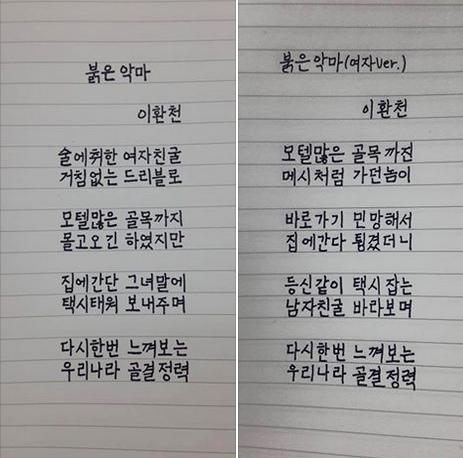 붉은 악마
이환천
술에취한 여자친굴
거침없는 드리블로
모텔많은 골목까지
몰고오긴 하였지만
집에간단 그녀말에
택시태워 보내주며
다시한번 느껴보는
우리나라 골결정력
붉은악마(여자ver.)
이환천
모텔많은 골목까진
메시처럼 가던놈이
바로가기 민망해서
집에간다 튕겼더니
등신같이 택시 잡는
남자친굴 바라보며
다시한번 느껴보는
우리나라 골결정력